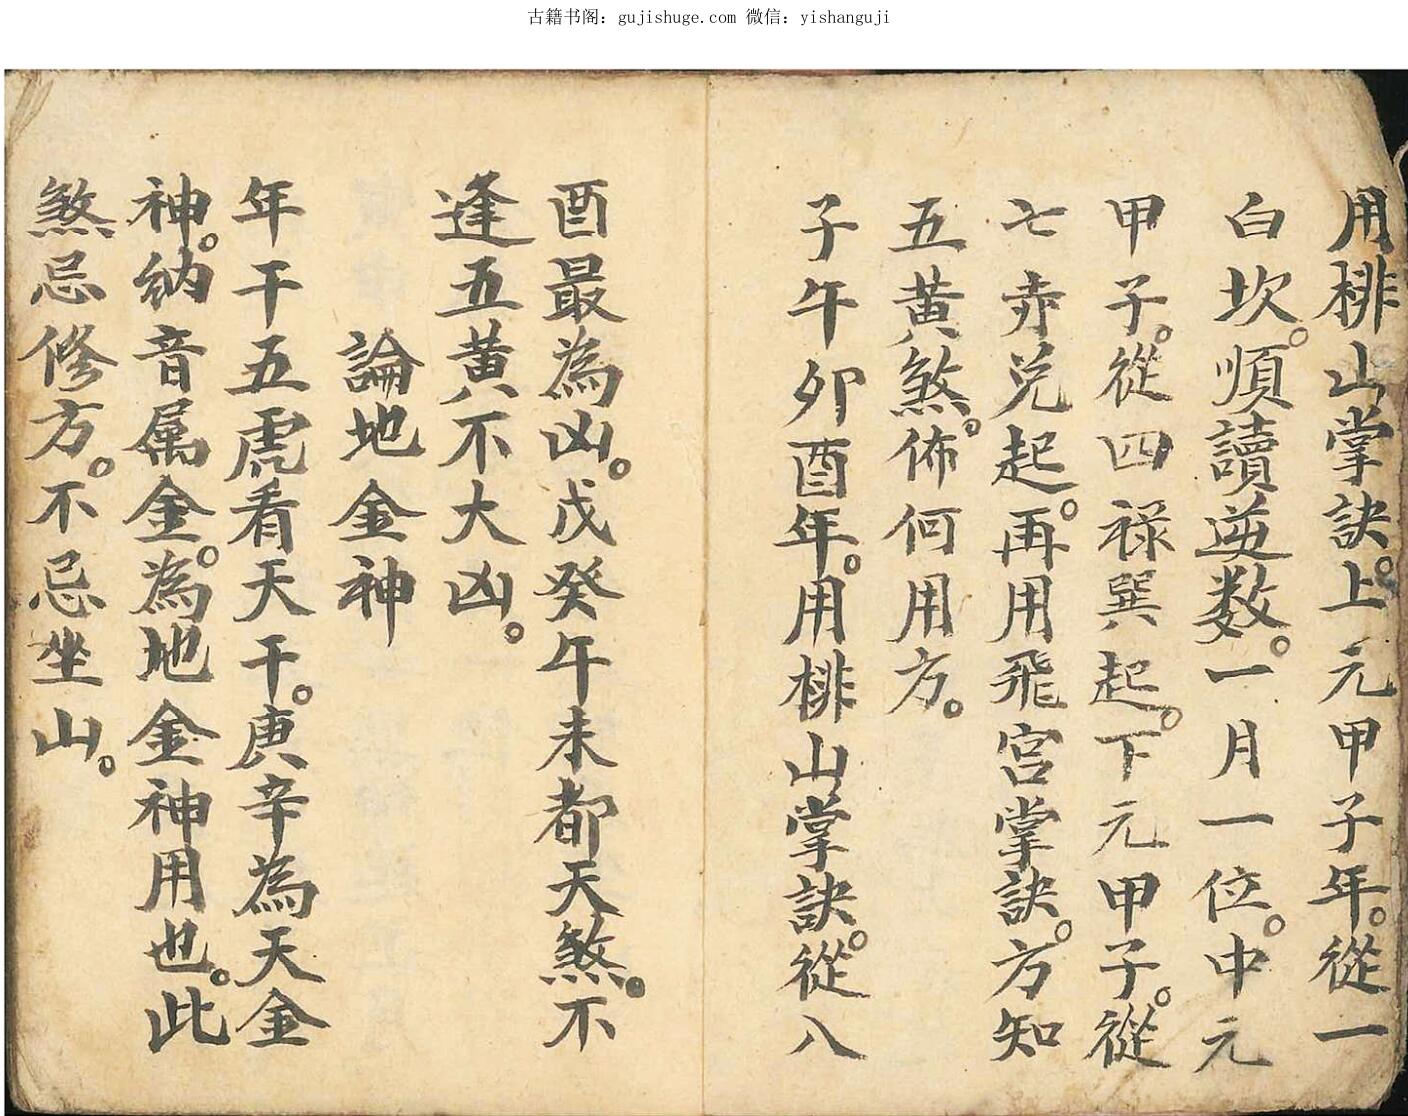 古籍书阁：gujishuge.com 微信：yishanguji
用棑山掌訣。上元甲子年。從一
白坎。順讀逆数。一月一位。中元
甲子。從四禄巽起。下元甲子。從
七赤兑起。再用飛宮掌訣。方知
五黄煞。佈何用方。
子午卯酉年。用棑山掌訣。從八
酉最為凶。戊癸午未都天煞。不
逢五黄不大凶。
論地金神
年干五虎看天干。庚辛為天金
神。納音属金。為地金神用也。此
煞忌修方。不忌坐山。